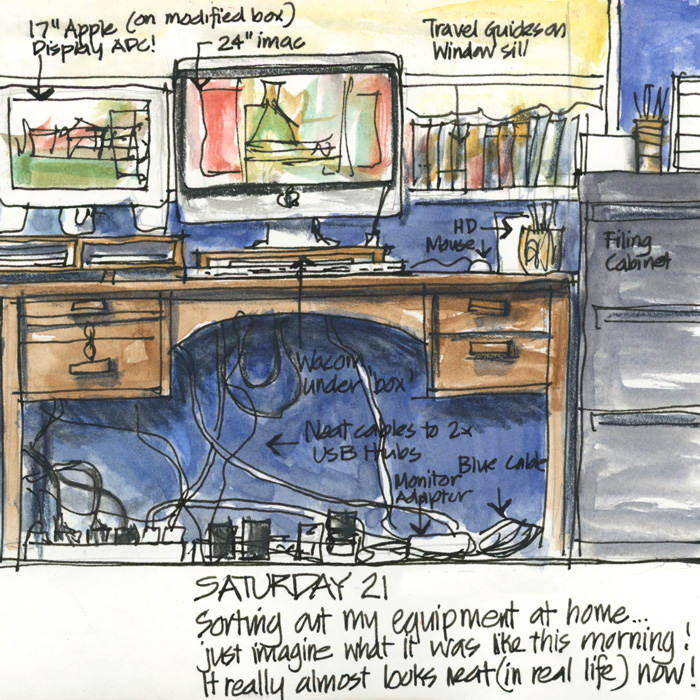 17" Apple (on modified box)
Display ADC!
24" imac
Travel Guides on
Window sill
HD
Mouse
Filing
Cabinet
Wacom
under 'box'
Neat cables to 2x
USB Hubs
Blue Cable
Monitor
Adaptor
SATURDAY 21
Sorting out my equipment at home...
just imagine what it was like this morning!
It really almost looks neat (in real life) now!